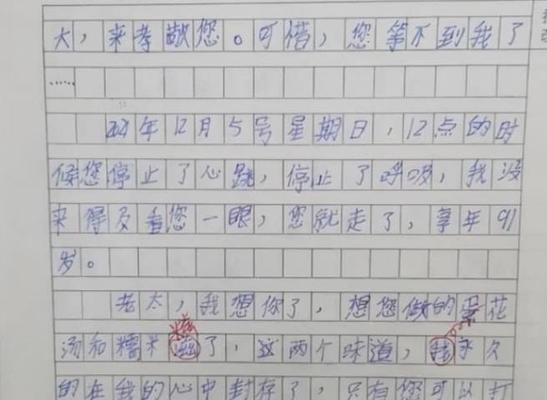 大，来孝敬您。可惜，您等不到我了
……
2021年12月5号星期日，12点的时
候您停止了心跳，停止了呼吸，我没
来得及看您一眼，您就走了，享年91
岁。
老太，我想你了，想您做的蛋花
汤和糯米糍了，这两个味道，我永久
的在我的心中封存了，只有您可以打